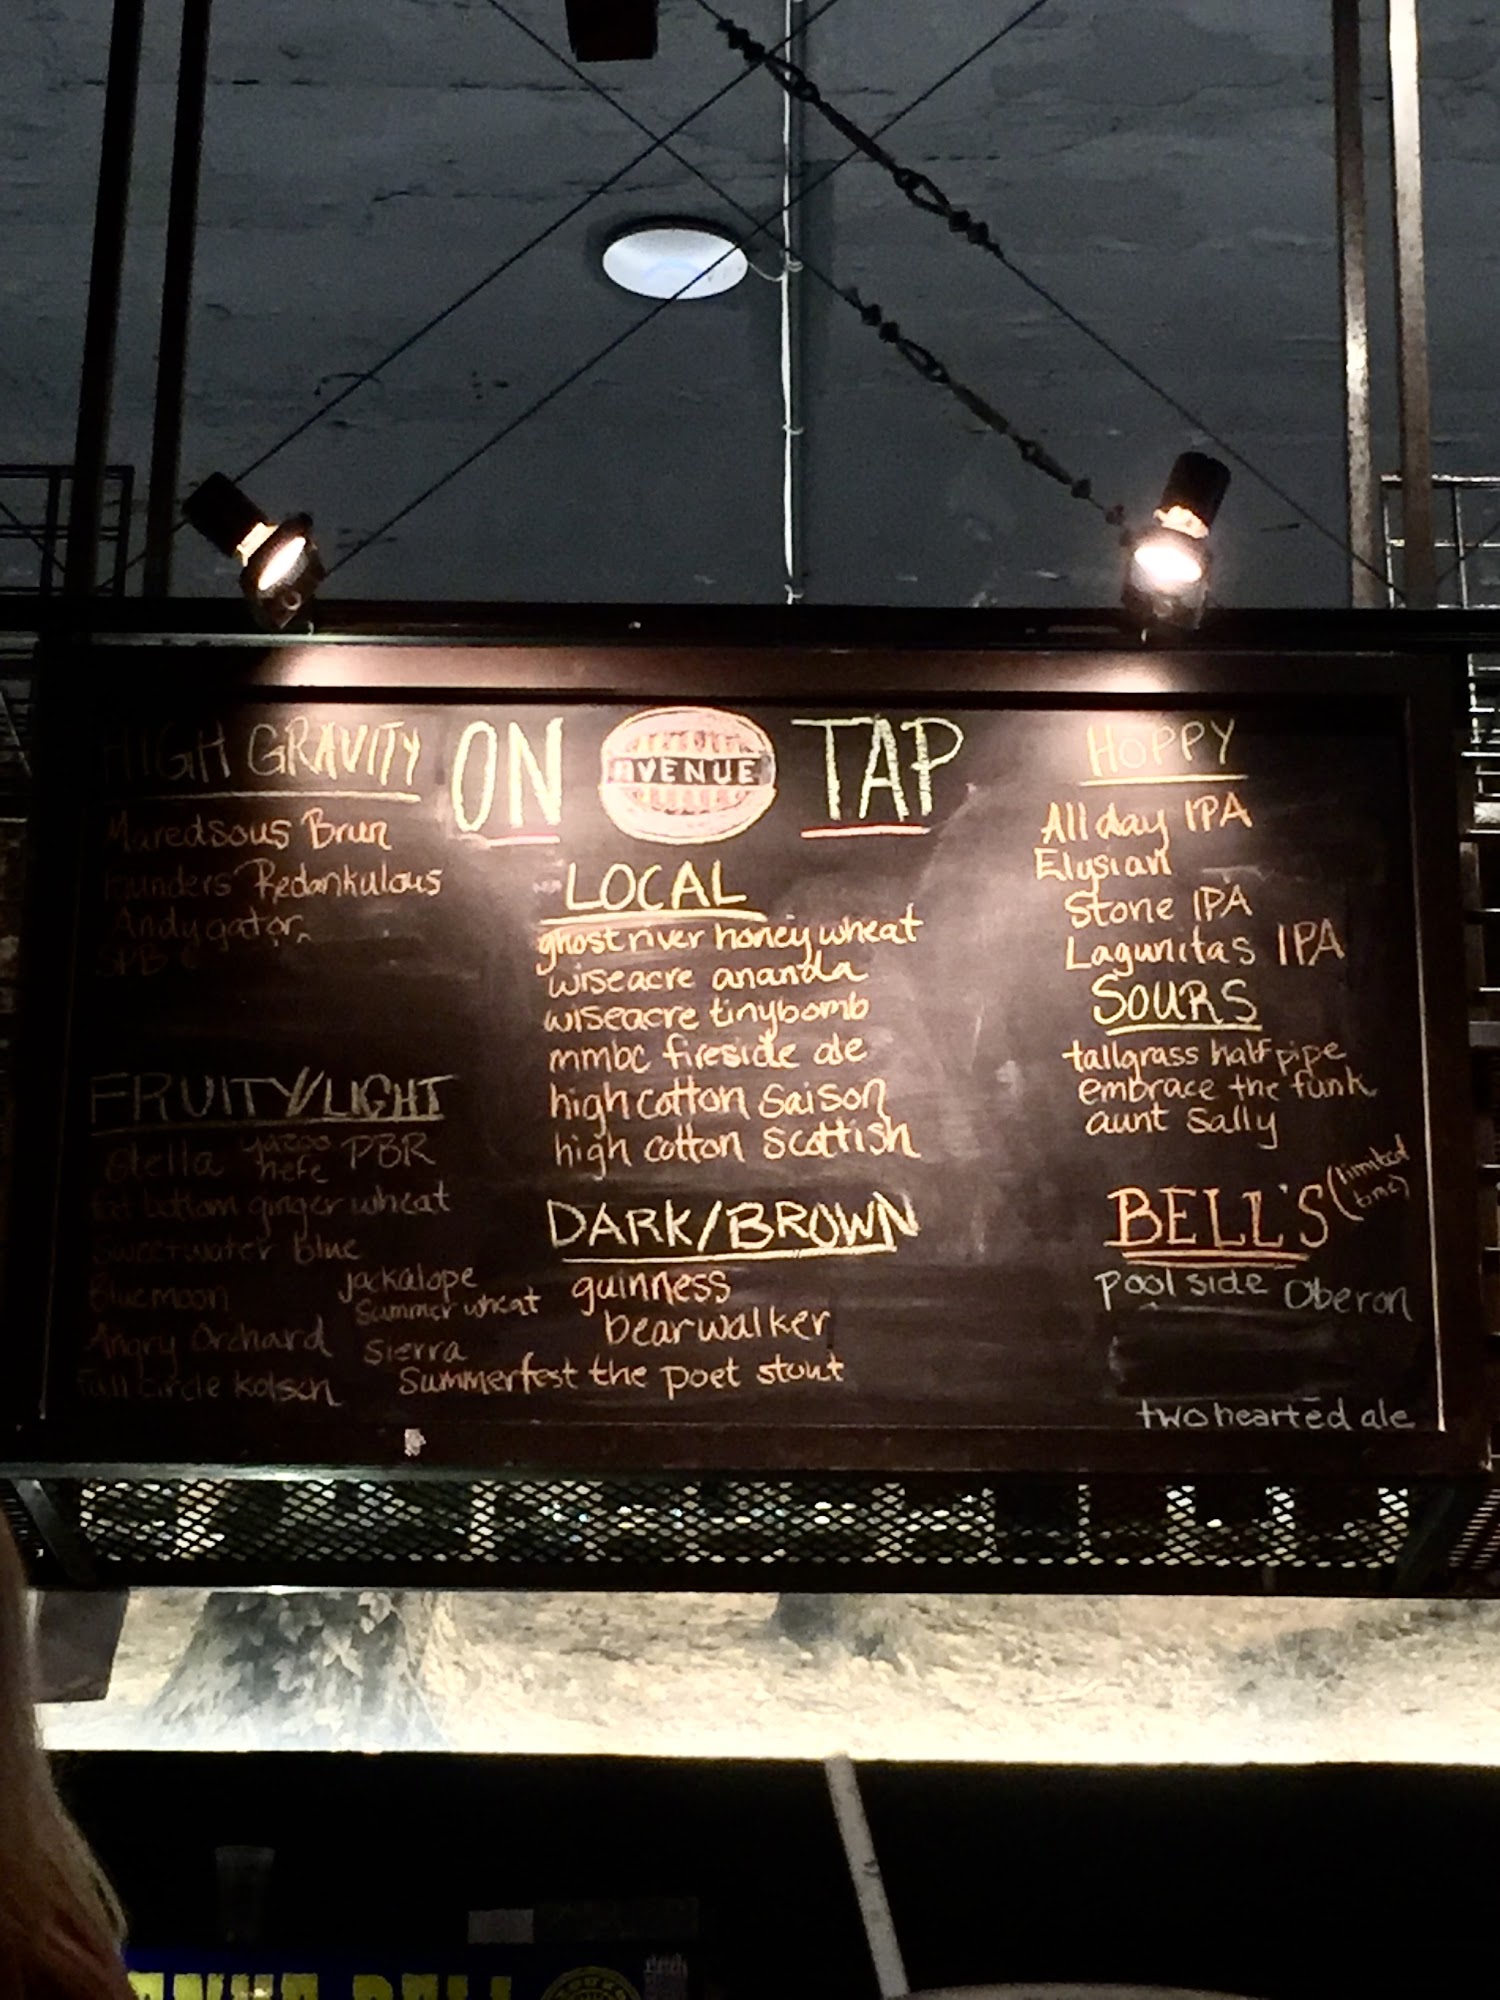 ON AVENUE TAP
HIGH GRAVITY
Maredsous Brun
founders Redankulous
Andygator
SPB
FRUITY/LIGHT
Stella yazoo hefe PBR
fat bottom ginger wheat
Sweetwater blue
Bluemoon
Angry Orchard
Full Circle Kolsch
jackalope
Summer wheat
Sierra
Summerfest
LOCAL
ghost river honey wheat
wiseacre ananda
wiseacre tinybomb
mmbc fireside ale
high cotton Saison
high cotton Scottish
DARK/BROWN
guinness
bearwalker
the poet stout
HOPPY
All day IPA
Elysian
Stone IPA
Lagunitas IPA
SOURS
tallgrass halfpipe
embrace the funk
aunt Sally
BELL'S (limited time)
Poolside Oberon
two hearted ale